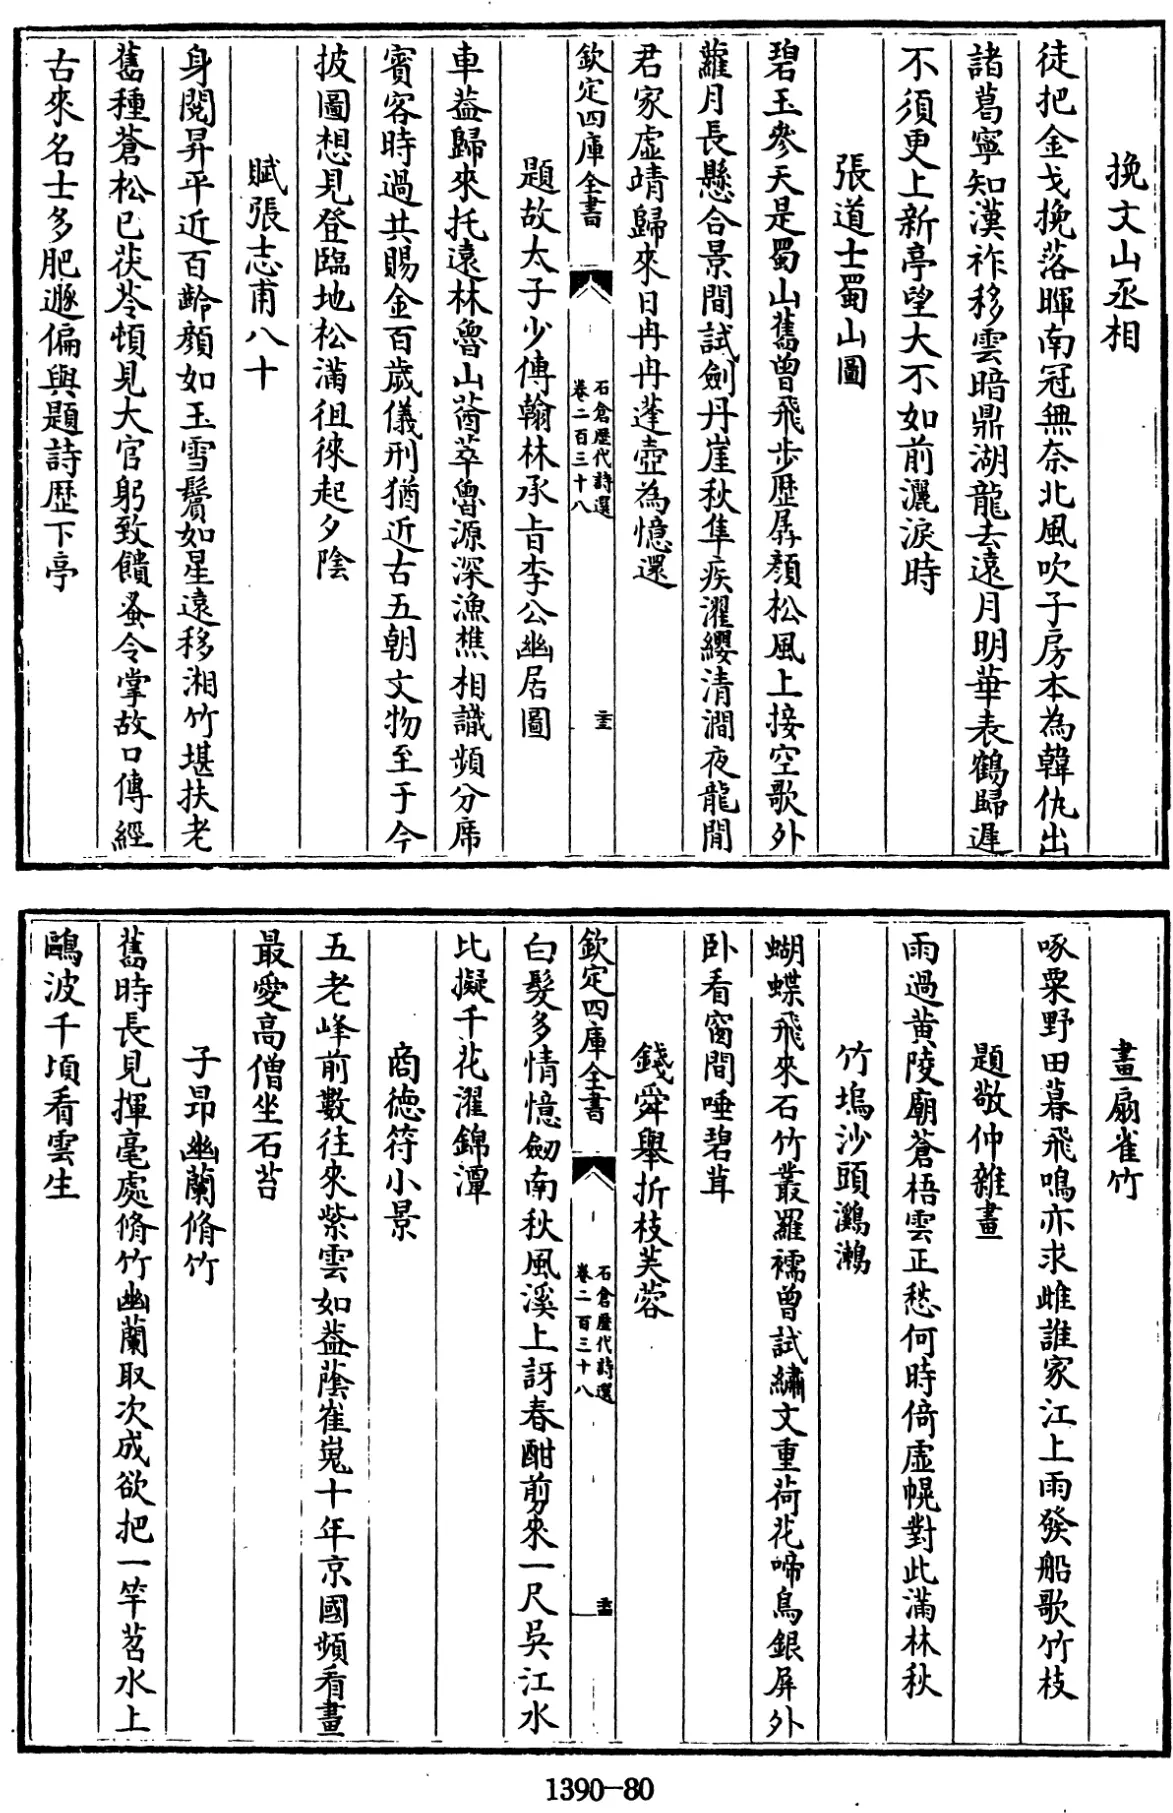 挽文山丞相
徒把金戈挽落暉南冠無奈北風吹子房本為韓仇出
諸葛寧知漢祚移雲暗鼎湖龍去遠月明華表鶴歸遲
不須更上新亭望大不如前灑淚時
張道士蜀山圖
碧玉參天是蜀山舊曾飛步歷孱顏松風上接空歌外
蘿月長懸合景間試劍丹崖秋隼疾濯纓清澗夜龍閒
君家虛靖歸來日冉冉蓬壺為憶還
欽定四庫全書
石倉歷代詩選
卷二百三十八
題故太子少傅翰林承旨李公幽居圖
車葢歸來托遠林魯山蒼萃魯源深漁樵相識頻分席
賓客時過共賜金百歲儀刑猶近古五朝文物至于今
披圖想見登臨地松滿徂徠起夕陰
賦張志甫八十
身閱昇平近百齡顏如玉雪鬢如星遠移湘竹堪扶老
舊種蒼松已茯苓頓見大官躬致饋蚤令掌故口傳經
古來名士多肥遯偏與題詩歷下亭
畫扇雀竹
啄粟野田暮飛鳴亦求雌誰家江上雨發船歌竹枝
題敬仲雜畫
雨過黃陵廟蒼梧雲正愁何時倚虛幌對此滿林秋
竹塢沙頭鸂鶒
蝴蝶飛來石竹叢羅襦曾試繡文重荷花啼鳥銀屏外
卧看窗間唾碧茸
錢舜舉折枝芙蓉
欽定四庫全書
石倉歷代詩選
卷二百三十八
白髮多情憶劒南秋風溪上訝春酣剪來一尺吳江水
比擬千花濯錦潭
商德符小景
五老峰前數往來紫雲如葢蔭崔嵬十年京國頻看畫
最愛高僧坐石苔
子昂幽蘭脩竹
舊時長見揮毫處脩竹幽蘭取次成欲把一竿苕水上
鷗波千頃看雲生
1390-80